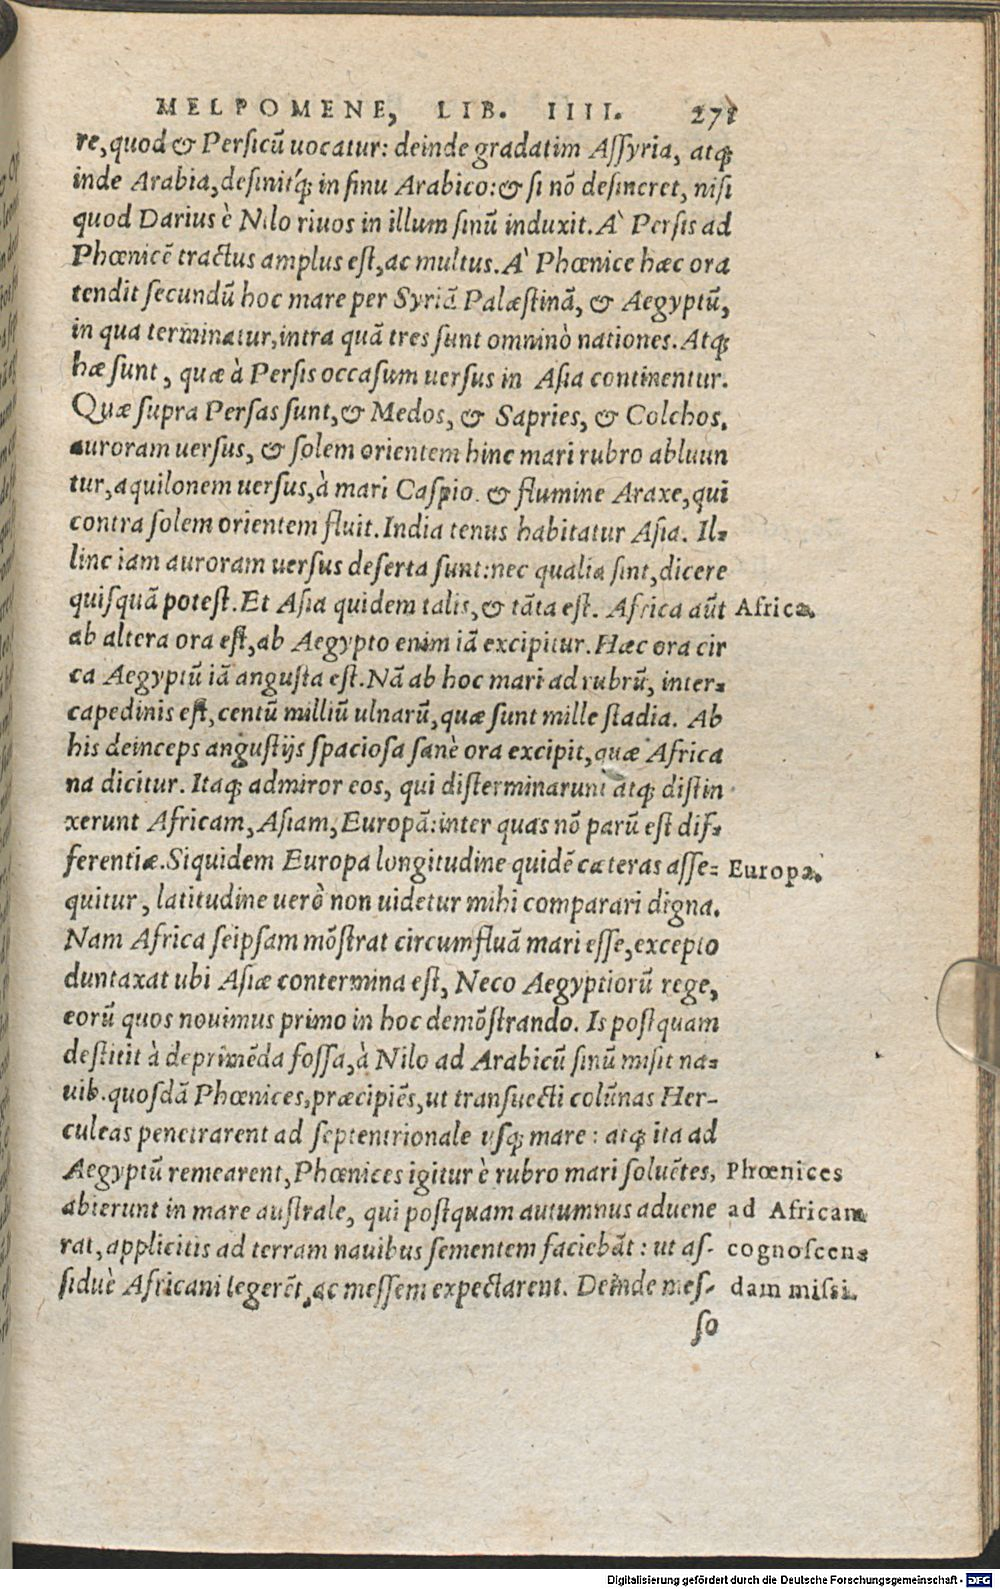 MELPOMENE, LIB. IIII. 271
re, quod & Persicū uocatur: deinde gradatim Assyria, atq;
inde Arabia, desinitq́; in sinu Arabico: & si nō desineret, nisi
quod Darius è Nilo riuos in illum sinū induxit. A` Persis ad
Phœnicē tractus amplus est, ac multus. A` Phœnice hæc ora
tendit secundū hoc mare per Syriā Palæstinā, & Aegyptū,
in qua terminatur, intra quā tres sunt omninò nationes. Atq;
hæ sunt, quæ à Persis occasum uersus in Asia continentur.
Quæ supra Persas sunt, & Medos, & Sapries, & Colchos,
auroram uersus, & solem orientem hinc mari rubro abluun
tur, aquilonem uersus, à mari Caspio. & flumine Araxe, qui
contra solem orientem fluit. India tenus habitatur Asia. Il-
linc iam auroram uersus deserta sunt: nec qualia sint, dicere
quisquā potest. Et Asia quidem talis, & tāta est. Africa aūt
Africa.
ab altera ora est, ab Aegypto enim iā excipitur. Hæc ora cir
ca Aegyptū iā angusta est. Nā ab hoc mari ad rubrū, inter-
capedinis est, centū milliū ulnarū, quæ sunt mille stadia. Ab
his deinceps angustijs spaciosa sanè ora excipit, quæ Africa
na dicitur. Itaq; admiror eos, qui disterminarunt atq; distin
xerunt Africam, Asiam, Europā: inter quas nō parū est dif-
ferentiæ. Siquidem Europa longitudine quidē cæteras asse-
Europa.
quitur, latitudine uerò non uidetur mihi comparari digna.
Nam Africa seipsam mōstrat circumfluā mari esse, excepto
duntaxat ubi Asiæ contermina est, Neco Aegyptiorū rege,
eorū quos nouimus primo in hoc demōstrando. Is postquam
destitit à deprimēda fossa, à Nilo ad Arabicū sinū misit na-
uib. quosdā Phœnices, præcipiēs, ut transuecti colūnas Her-
culeas penetrarent ad septentrionale usq; mare: atq; ita ad
Aegyptū remearent, Phœnices igitur è rubro mari soluētes,
abierunt in mare australe, qui postquam autumnus aduene
rat, applicitis ad terram nauibus sementem faciebāt: ut as-
siduè Africani legerēt, ac messem expectarent. Deinde mes-
Phœnices
ad Africam
cognoscen-
dam missi.
so
Digitalisierung gefördert durch die Deutsche Forschungsgemeinschaft - DFG